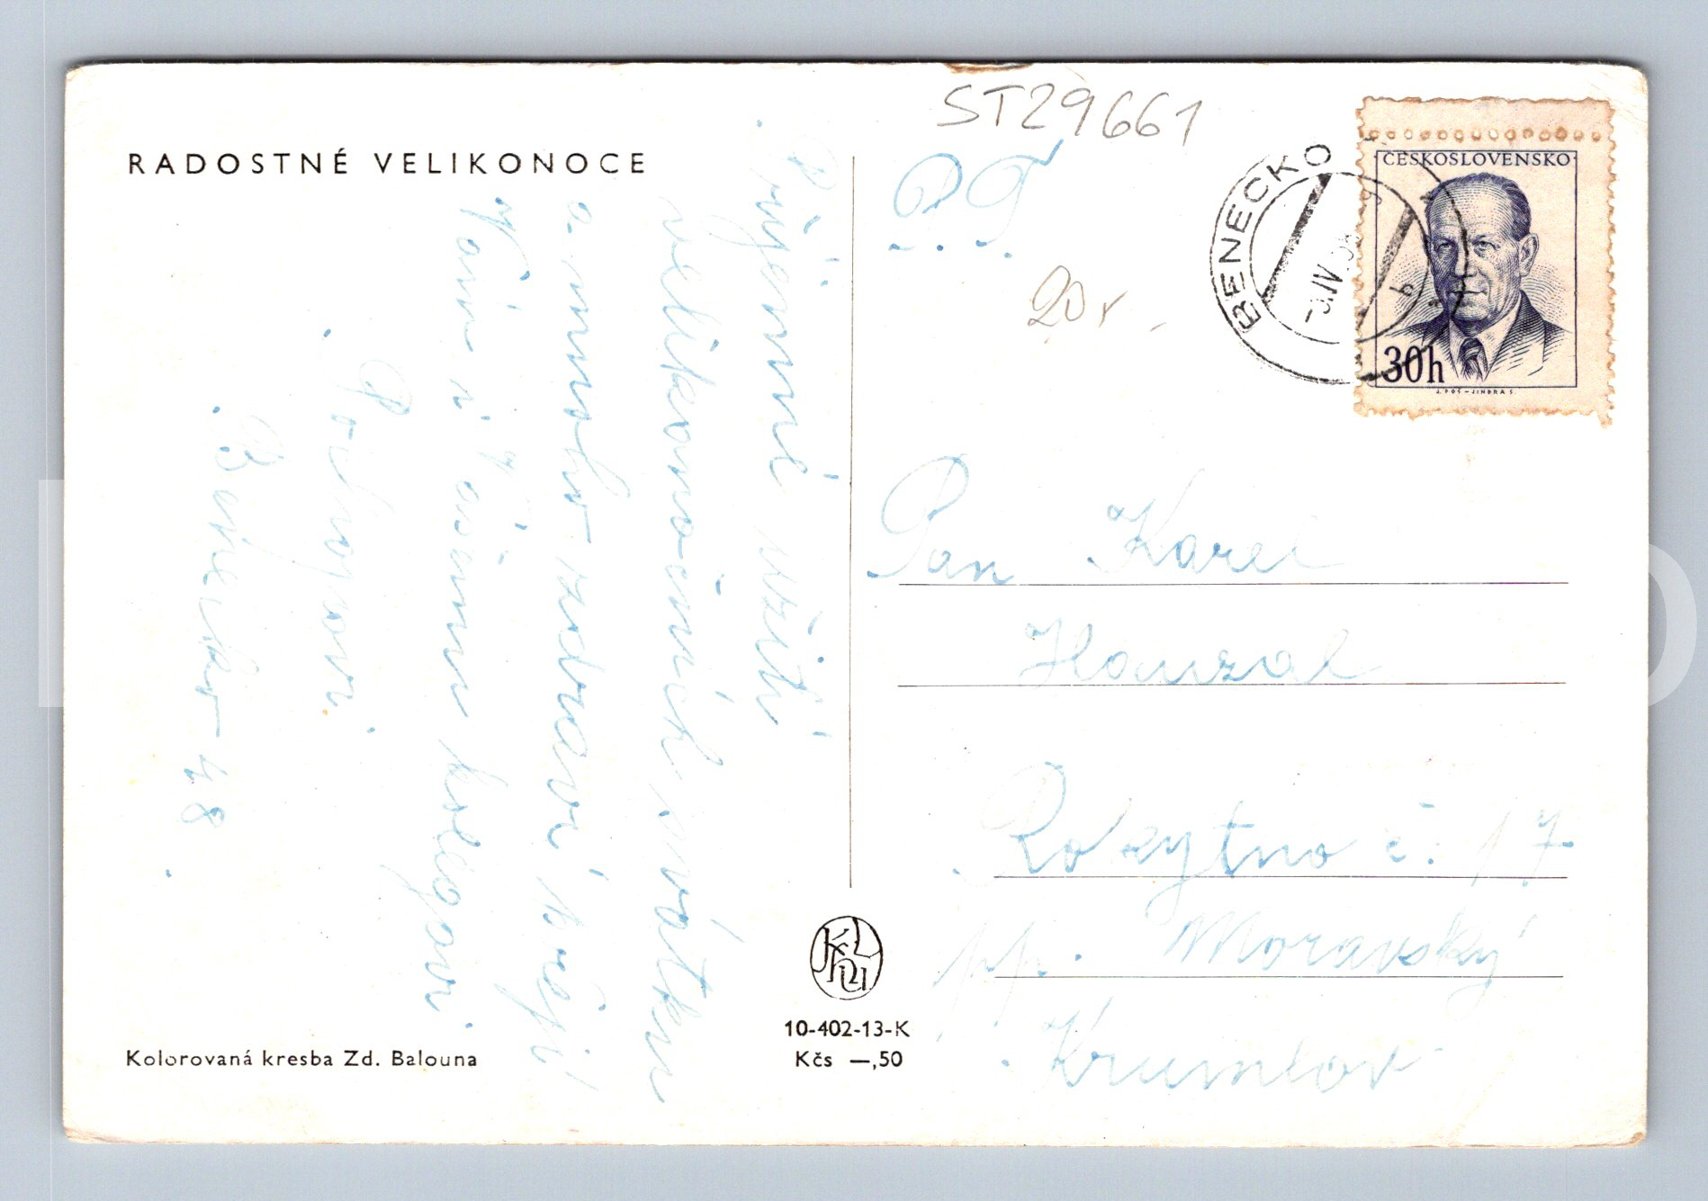 RADOSTNÉ VELIKONOCE
Příjemné užití
velikonočních svátku
a mnoho zdraví přejí
Vám i Vašemu kolegovi
Benecko 48
Kolorovaná kresba Zd. Balouna
10-402-13-K
Kčs —,50
ST29661
P. T.
20r.
BENECKO
IV
ČESKOSLOVENSKO
30h
J. POŠ - JINDRA S.
Pan Karel
Houzal
Rokytno č. 17.
pp. Moravský
Krumlov